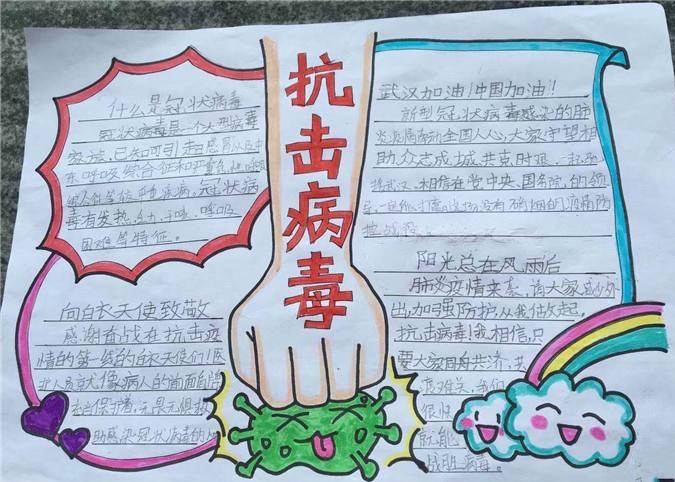 抗击病毒
什么是冠状病毒
冠状病毒是一个大型病毒
家族,已知可引起感冒以及中
东呼吸综合征和严重急性呼吸
综合征等较严重疾病。冠状病
毒有发热、乏力、干咳、呼吸
困难等特征。
向白衣天使致敬
感谢奋战在抗击疫
情的第一线的白衣天使们!医
护人员就像病人的前面
保护着,无畏无惧
助感染冠状病毒的
武汉加油!中国加油!!
新型冠状病毒感染的肺
炎疫情牵动全国人心,大家守望相
助众志成城共克时艰,
武汉,相信在党中央、国务院的领
导,一定能打赢这场没有硝烟的疫情防
控战役。
阳光总在风雨后
肺炎疫情来袭,请大家减少外
出,加强防护从我做起。
抗击病毒!我相信,只
要大家同舟共济,共
渡难关,我们
很快
就能
战胜病毒。